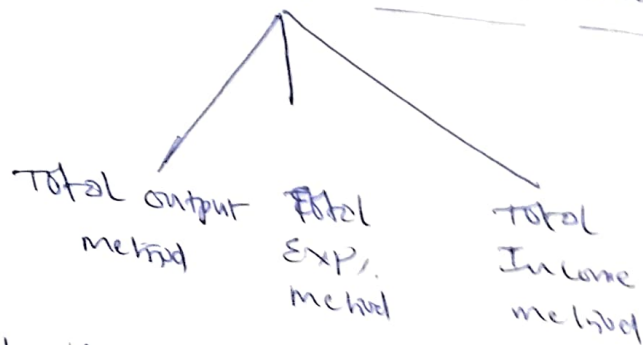 Total output
method
Total
Exp.
method
Total
Income
method